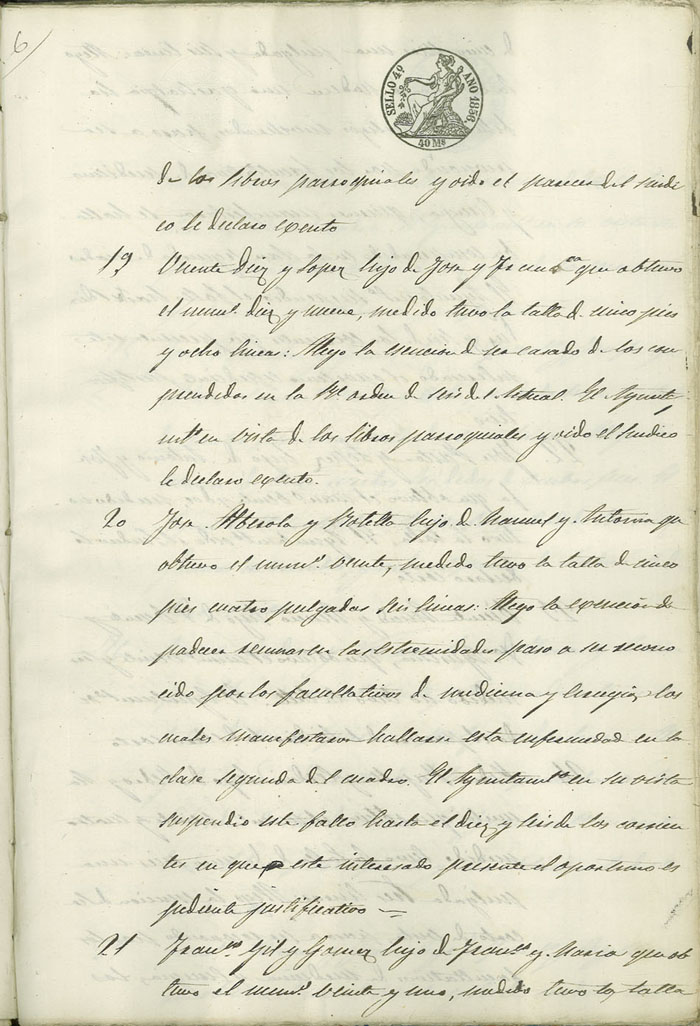 6
SELLO 4º AÑO 1856.
40 Ms
de los libros parroquiales y oido el parecer del sindi
co le declaro exento
19 Vicente Diez y Lopez hijo de Jose y Franca que obtuvo
el numo. diez y nueve, medido tuvo la talla de cinco pies
y ocho lineas: Alego la esencion de ser casado de los com
prendidos en la Rl orden de seis del Actual. El Ayunta
mto en vista de los libros parroquiales y oido el Sindico
le declaro exento.
20 Jose Alberola y Botella hijo de Manuel y Antonia que
obtuvo el numo. veinte, medido tuvo la talla de cinco
pies cuatro pulgadas seis lineas: Alego la exencion de
padecer en las estremidades paso a ser recono
cido por los facultativos de medicina y cirugia los
cuales manifestaron hallarse esta enfermedad en la
clase segunda del cuadro. El Ayuntamto en su vista
suspendio este fallo hasta el diez y seis de los corrien
tes en que este interesado presente el oportuno es
pediente justificativo
21 Franco. Gil y Gomez hijo de Franco. y Maria que ob
tuvo el numo. veinte y uno, medido tuvo la talla